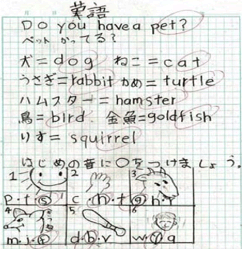 単語
Do you have a pet?
ペット かってる?
犬=dog ねこ=cat
うさぎ=rabbit かめ=turtle
ハムスター=hamster
鳥=bird 金魚=goldfish
りす=squirrel
はじめの音に○をつけましょう。
1 2 3
p・t・s c・h・t g・h・
4 5 6
m・i・s d・b・v w・f・g